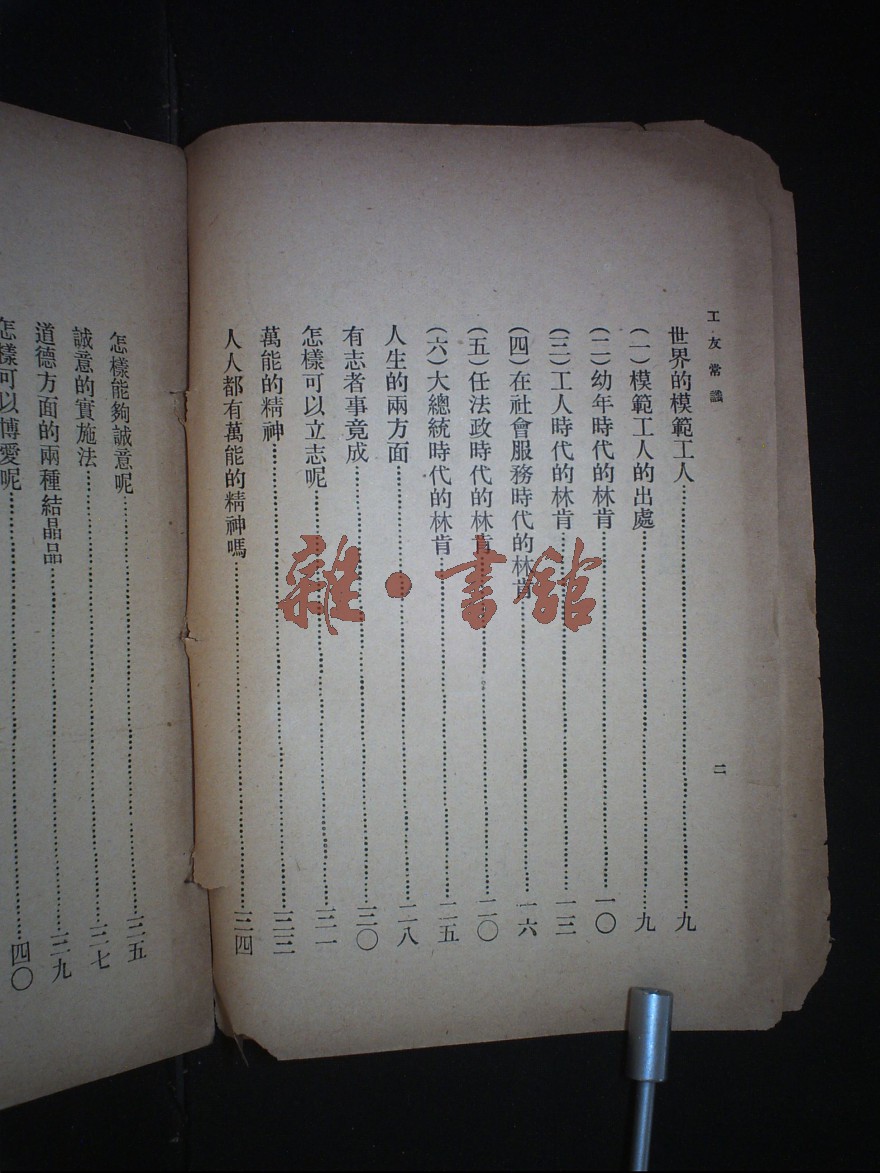 工友常識
二
世界的模範工人……九
(一)模範工人的出處……九
(二)幼年時代的林肯……一〇
(三)工人時代的林肯……一三
(四)在社會服務時代的林肯……一六
(五)任法政時代的林肯……二〇
(六)大總統時代的林肯……二五
人生的兩方面……二八
有志者事竟成……三〇
怎樣可以立志呢……三一
萬能的精神……三三
人人都有萬能的精神嗎……三四
怎樣能夠誠意呢……三五
誠意的實施法……三七
道德方面的兩種結晶品……三九
怎樣可以博愛呢……四〇
雜·書館